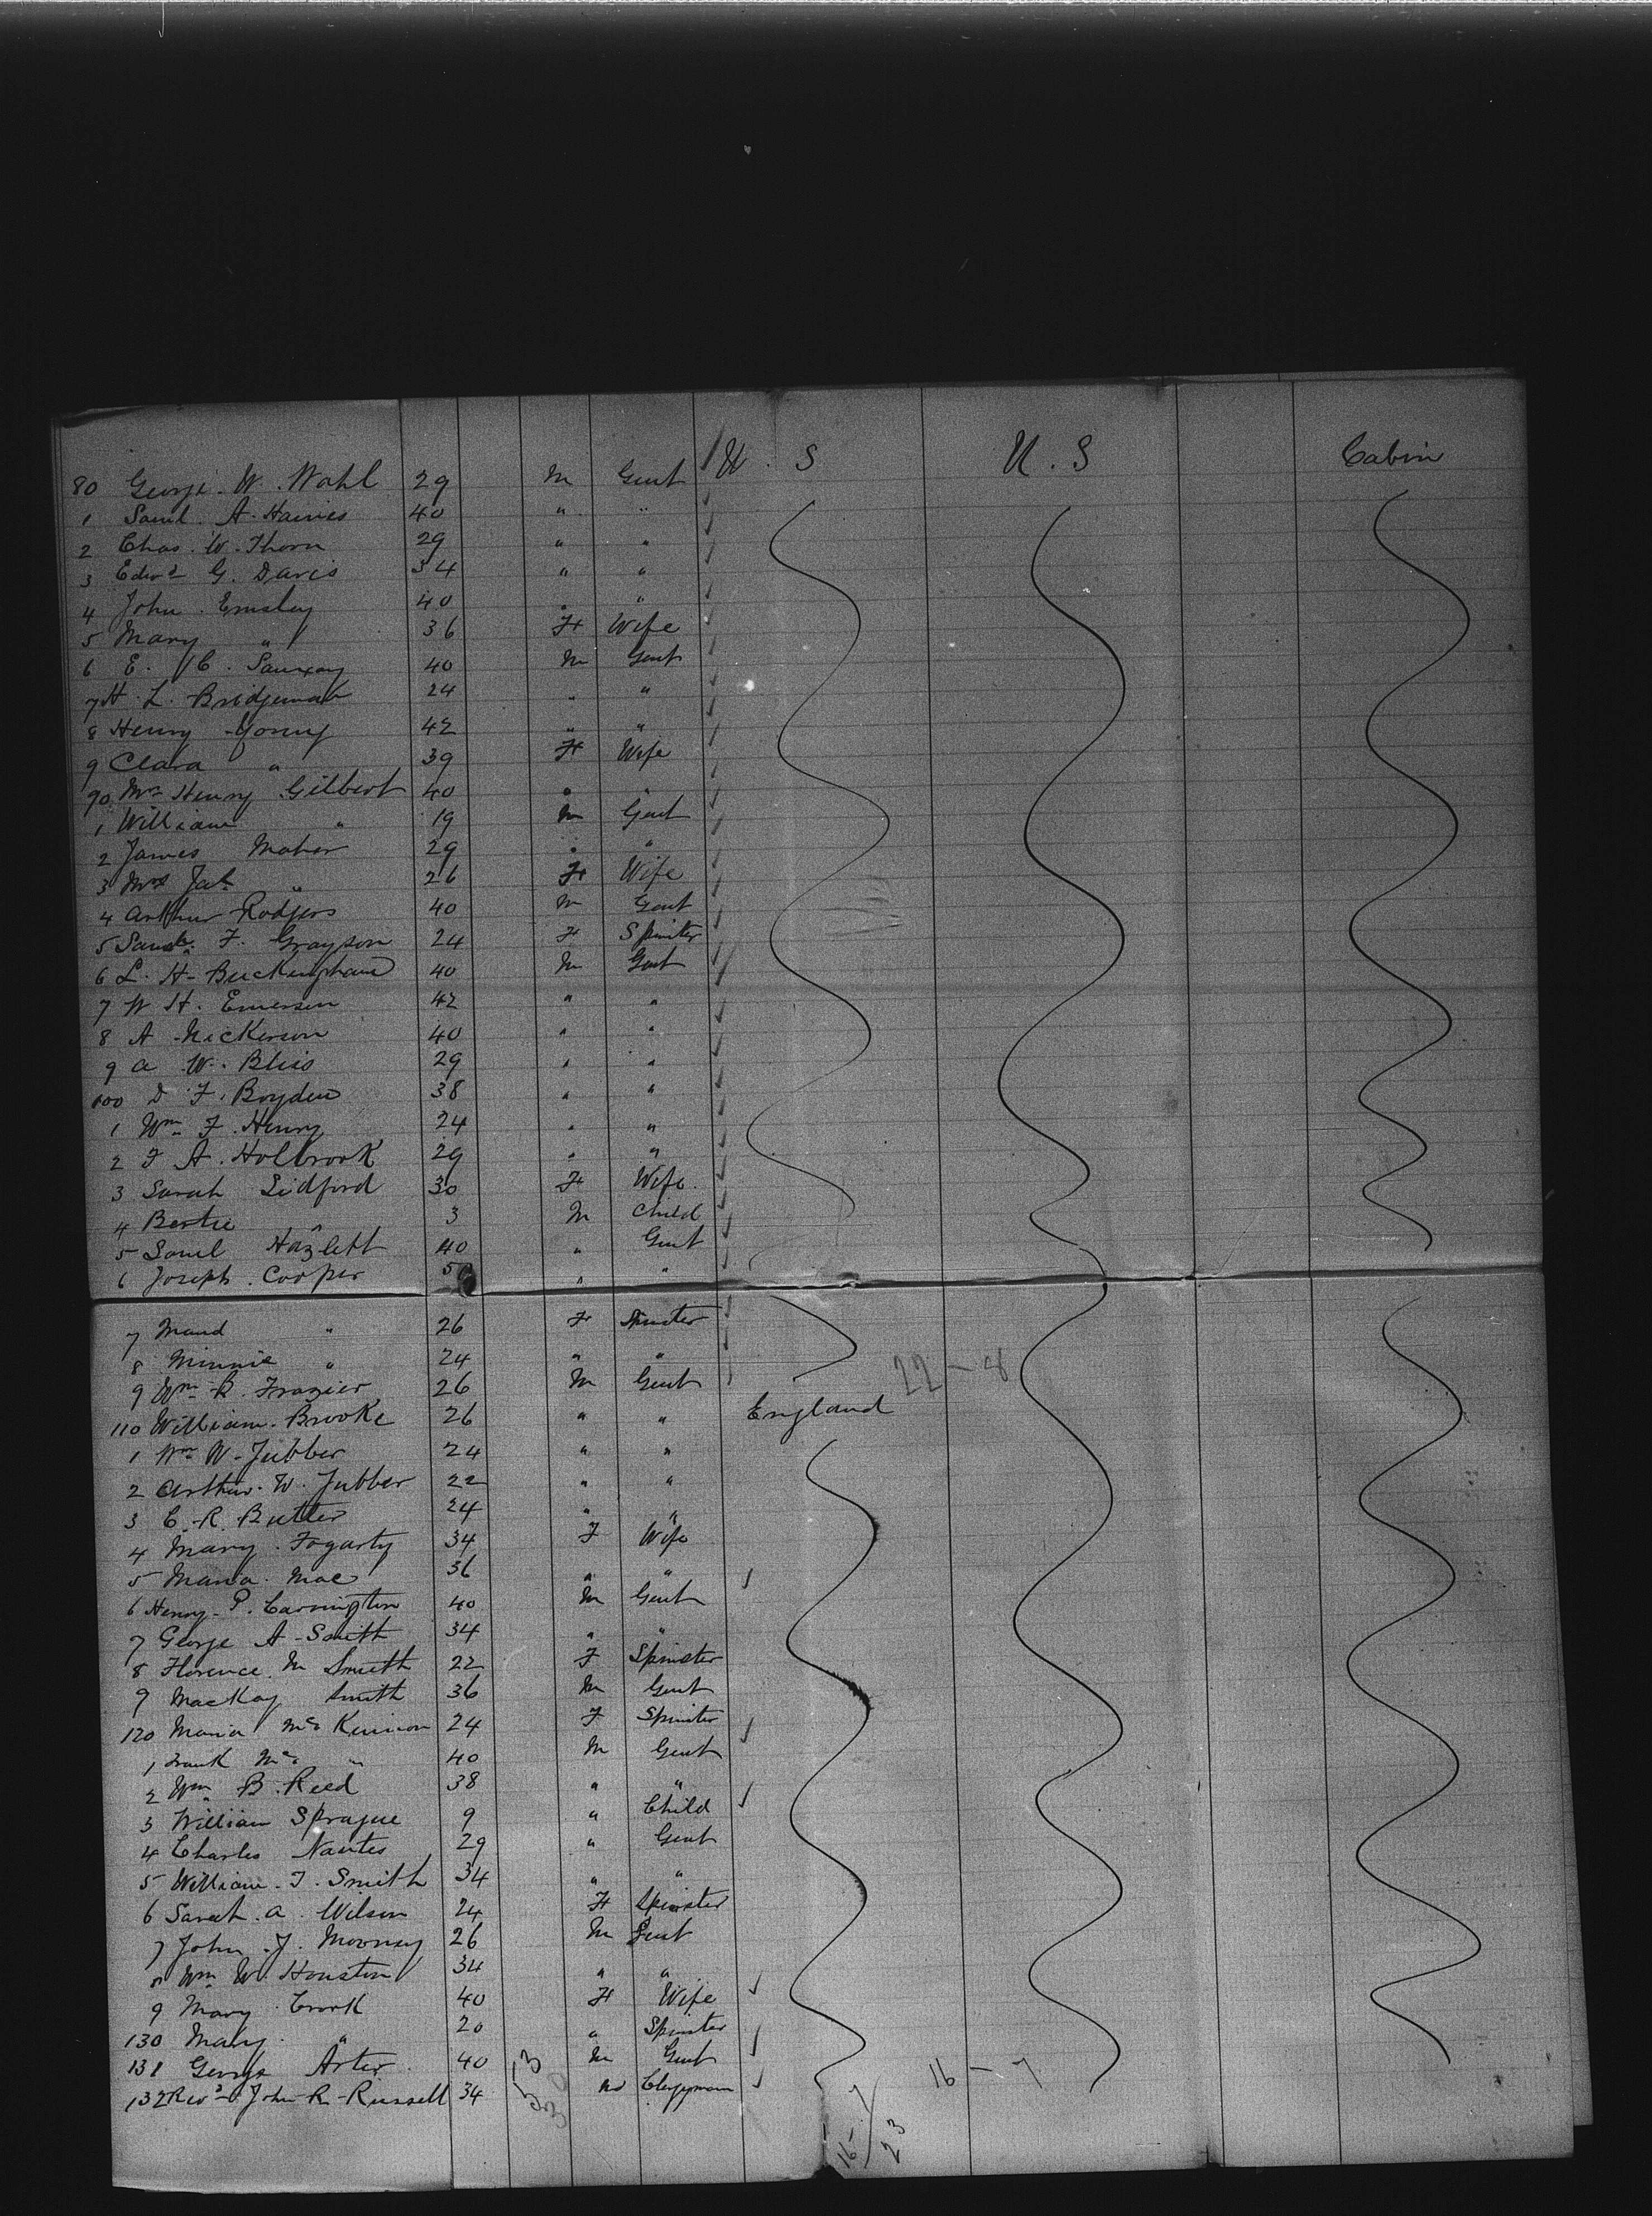 80 George W. Wahl 29 M Gent U. S U. S Cabin
1 Saml. A. Haines 40 " "
2 Chas. W. Thorn 29 " "
3 Edwd G. Davis 34 " "
4 John Emsley 40 " "
5 Mary " 36 F Wife
6 E. C. 40 M Gent
7 H. L. Bridgeman 24 " "
8 Henry Young 42 " "
9 Clara " 39 F Wife
90 Mrs Henry Gilbert 40 " "
1 William " 19 M Gent
2 James Maher 29 " "
3 Mrs Jas. " 26 F Wife
4 Arthur Rodgers 40 M Gent
5 F. Grayson 24 F Spinster
6 L. H. Buckingham 40 M Gent
7 W H. Emerson 42 " "
8 A Nickerson 40 " "
9 A W. Bliss 29 " "
100 D F. Boyden 38 " "
1 Wm F. Henry 24 " "
2 F A. Holbrook 29 " "
3 Sarah Lidford 30 F Wife
4 Bertie " 3 M Child
5 Saml Hazlett 40 " Gent
6 Joseph Cooper 50 " "
7 Maud " 26 F Spinster
8 Minnie " 24 " "
9 Wm R. Frazier 26 M Gent 22-8
110 William Brooke 26 " " England
1 Wm W. Jubber 24 " "
2 Arthur W. Jubber 22 " "
3 C. R. Butler 24 " "
4 Mary Fogarty 34 F Wife
5 Maria Mae 36 " "
6 Henry P. Carrington 40 M Gent
7 George A Smith 34 " "
8 Florence M Smith 22 F Spinster
9 MacKay Smith 36 M Gent
120 Maria McKinnon 24 F Spinster
1 Frank Mc " 40 M Gent
2 Wm B. Reed 38 " "
3 William Sprague 9 " Child
4 Charles Nantes 29 " Gent
5 William T. Smith 34 " "
6 Sarah A. Wilson 24 F Spinster
7 John J. Mooney 26 M Gent
8 Wm W. Houston 34 " "
9 Mary Crook 40 F Wife
130 Mary " 20 " Spinster
131 George Arter 40 M Gent 16-7
132 Revd John R. Russell 34 M Clergyman